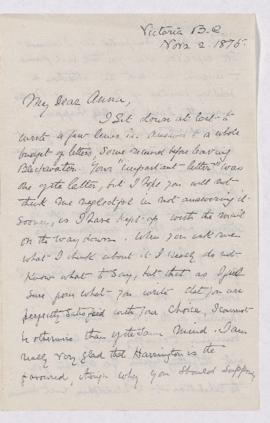 Victoria B.C.
Novr 2. 1875.
My Dear Anna,
I Sit down at last to
write a few lines in answer to a whole
budget of letters Some received before leaving
Blackwater. Your "important letter" was
one of the letter, but I hope you will not
think me neglectful in not answering it
Sooner, as I have kept up with the mail
on the way down. When you ask me
what I think about it I really do not
Know what to Say, but that as I feel
Sure from what you write that you are
perfectly Satisfied with your Choice, I cannot
be otherwise than of the Same mind. I am
really very glad that Harrington is the
favoured, though why you Should Suppose